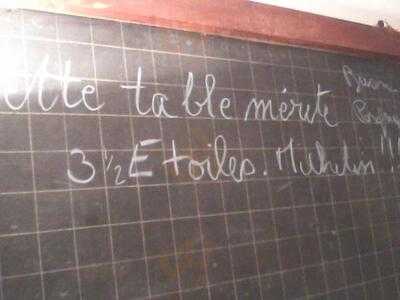 ette table mérite
3 1/2 Etoiles. Michelin !!!